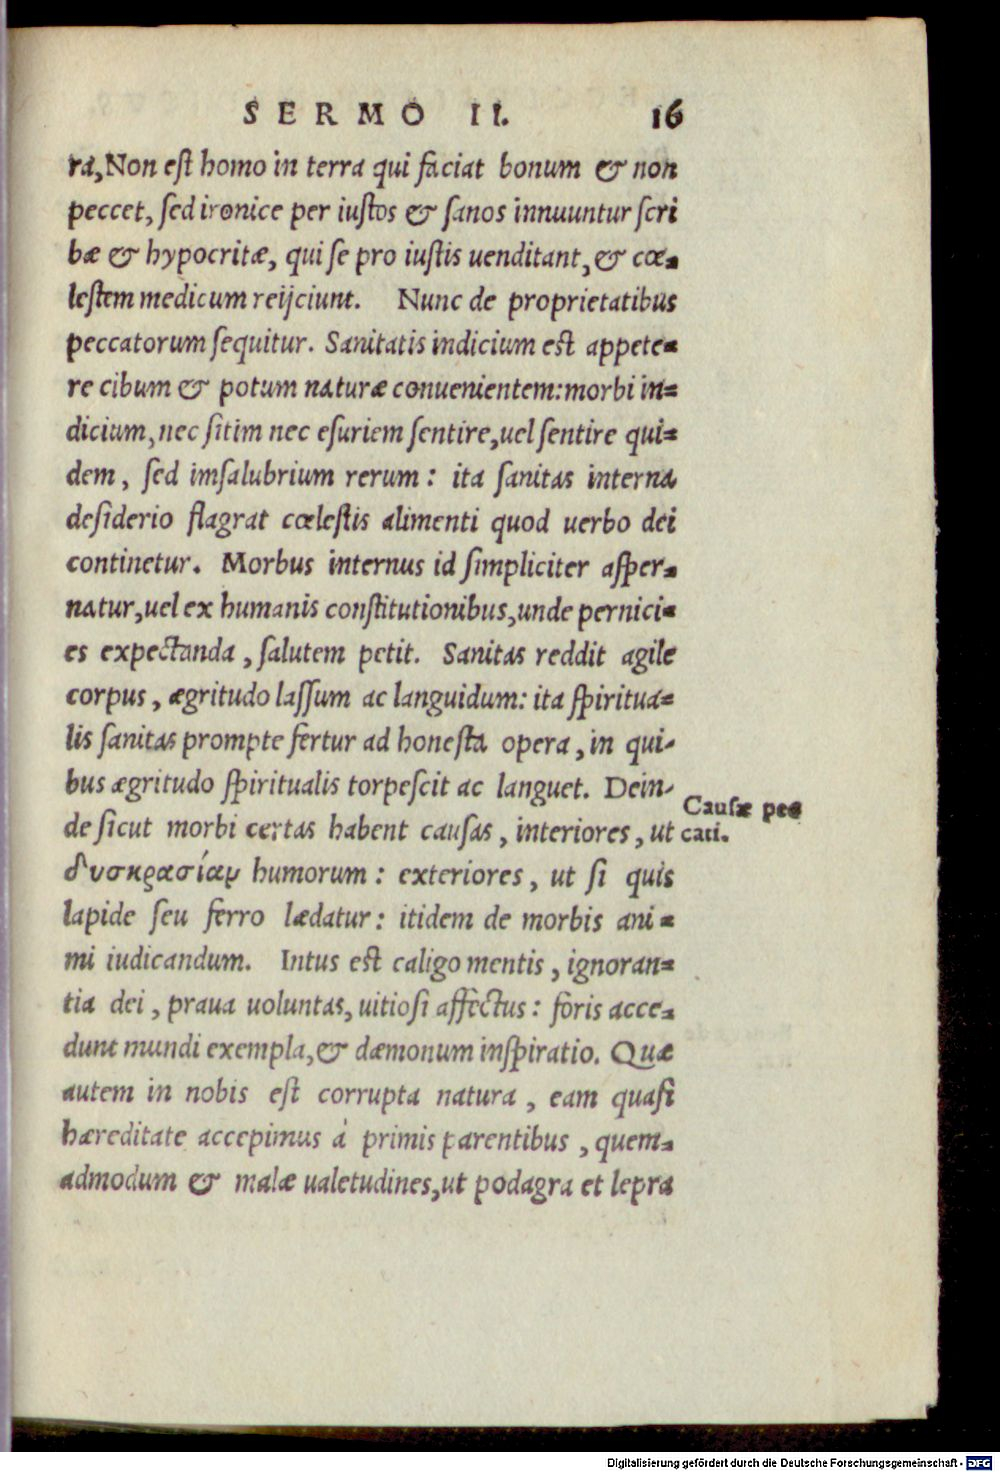 SERMO II. 16
ra, Non est homo in terra qui faciat bonum & non
peccet, sed ironice per iustos & sanos innuuntur scri
bæ & hypocritæ, qui se pro iustis uenditant, & cœ-
lestem medicum reijciunt. Nunc de proprietatibus
peccatorum sequitur. Sanitatis indicium est appete-
re cibum & potum naturæ conuenientem: morbi in-
dicium, nec sitim nec esuriem sentire, uel sentire qui-
dem, sed imsalubrium rerum: ita sanitas interna
desiderio flagrat cœlestis alimenti quod uerbo dei
continetur. Morbus internus id simpliciter asper-
natur, uel ex humanis constitutionibus, unde pernici-
es expectanda, salutem petit. Sanitas reddit agile
corpus, ægritudo lassum ac languidum: ita spiritua-
lis sanitas prompte fertur ad honesta opera, in qui-
bus ægritudo spiritualis torpescit ac languet. Dein-
de sicut morbi certas habent causas, interiores, ut
δυσκρασίαν humorum: exteriores, ut si quis
lapide seu ferro lædatur: itidem de morbis ani-
mi iudicandum. Intus est caligo mentis, ignoran-
tia dei, praua uoluntas, uitiosi affectus: foris acce-
dunt mundi exempla, & dæmonum inspiratio. Quæ
autem in nobis est corrupta natura, eam quasi
hæreditate accepimus à primis parentibus, quem-
admodum & malæ ualetudines, ut podagra et lepra
Causæ pec
cati.
Digitalisierung gefördert durch die Deutsche Forschungsgemeinschaft - DFG